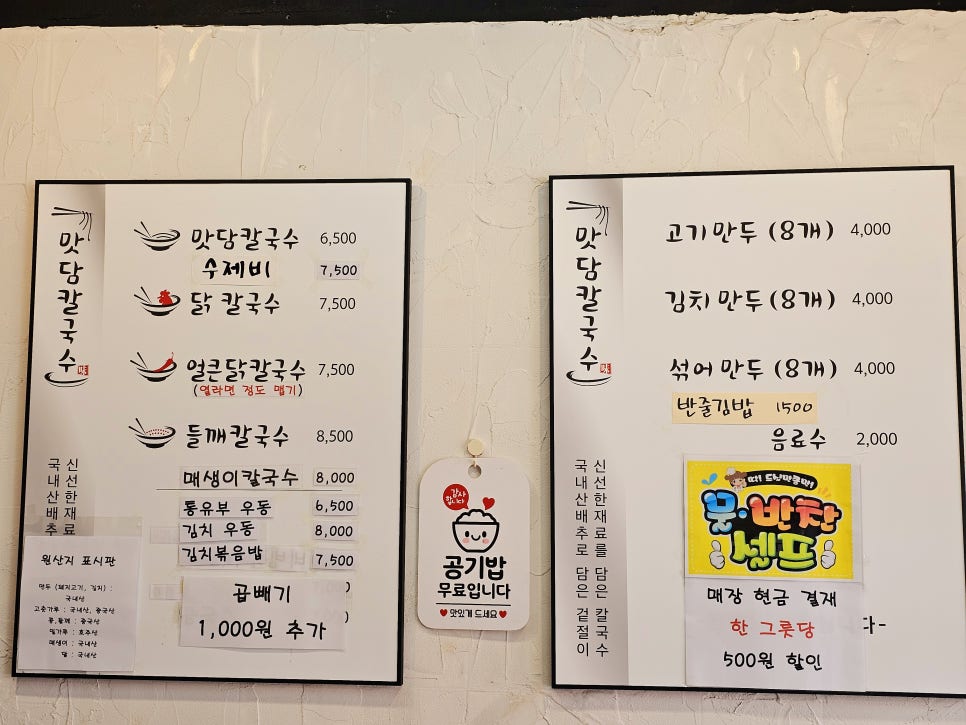 맛담칼국수
맛담칼국수 6,500
수제비 7,500
닭 칼국수 7,500
얼큰닭칼국수 7,500
(열라면 정도 맵기)
들깨칼국수 8,500
매생이칼국수 8,000
통유부 우동 6,500
김치 우동 8,000
김치볶음밥 7,500
곱빼기
1,000원 추가
신선한 재료
국내산배추
원산지 표시판
만두 (돼지고기, 김치) :
국내산
고춧가루 : 국내산, 중국산
콩,들깨 : 중국산
밀가루 : 호주산
매생이 : 국내산
닭 : 국내산
감사
합니다
공기밥
무료입니다
맛있게 드세요
맛담칼국수
고기만두 (8개) 4,000
김치만두 (8개) 4,000
섞어만두 (8개) 4,000
반줄김밥 1500
음료수 2,000
신선한재료를 담은 칼국수
국내산배추로 담은 겉절이
더! 드실만큼만!
물·반찬
셀프
매장 현금 결재
한 그릇당
500원 할인
다-